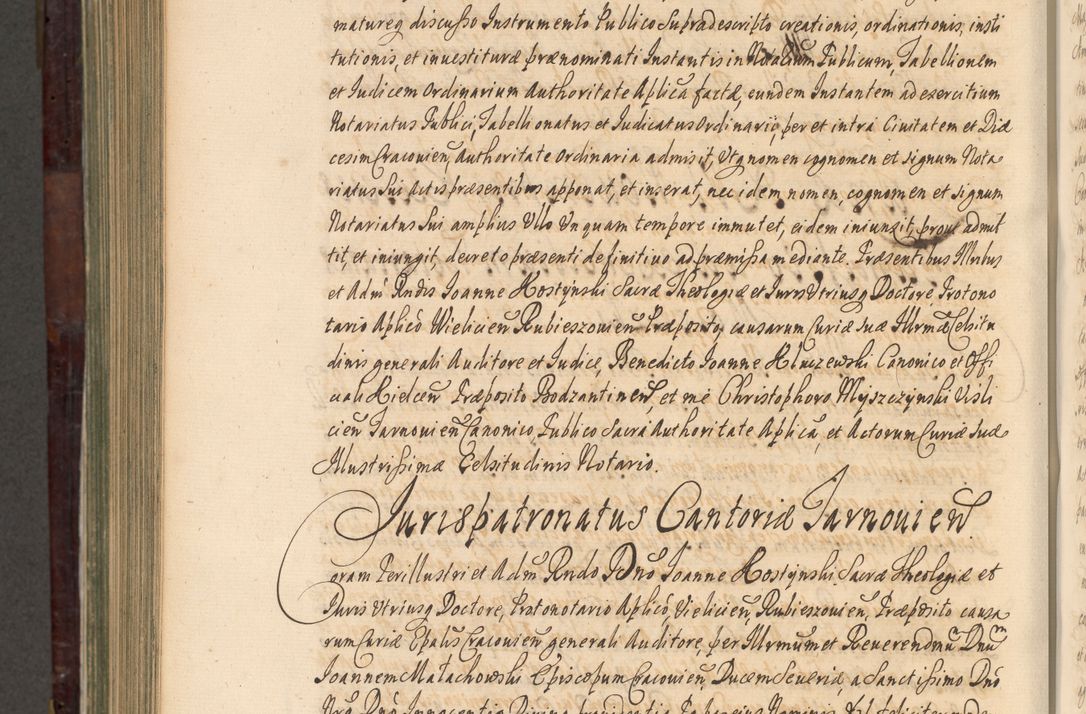 matureq discusso Instrumento Publico Supradescripto creationis, ordinationis, insti
tutionis, et investituræ prænominati Instantis in Notarium Publicum, Tabellionem
et Iudicem Ordinarium Authoritate Aplica factæ, eundem Instantem ad exercitium
Notariatus Publici, Tabellionatus et Iudicatus Ordinarii, per et intra Civitatem et Diæ
cesim Cracovien, Authoritate Ordinaria admisit, Utq nomen cognomen et signum Nota
riatus Sui Actis præsentibus apponat, et inserat, nec idem nomen, cognomen et signum
Notariatus Sui amplius Ullo Unquam tempore immutet, eidem iniunxit, prout admit
tit, et iniungit, decreto præsenti definitivo ad præmissa mediante. Præsentibus Illribus
et Adm Rndis Ioanne Hostynski Sacræ Theologiæ et Iuris Utriusq Doctore, Protono
tario Aplico, Vielicien Rubieszovien Præposito, causarum Curiæ Suæ Illrmæ Celsitu
dinis generali Auditore et Iudice, Benedicto Ioanne Kluczewski Canonico et Offi
ciali Kielcen Præposito Bodzantinen, et me Christophoro Myszczynski Visli
cien Tarnovien Canonico, Publico Sacra Authoritate Aplica, et Actorum Curiæ Suæ
Illustrissimæ Celsitudinis Notario.
Iurispatronatus Cantoriæ Tarnovien
Coram Perillustri et Adm Rndo Dno Ioanne Hostynski Sacræ Theologiæ et
Iuris Utriusq Doctore, Protonotario Aplico, Vielicien, Rubieszovien, Præposito causa
rum Curiæ Epalis Cracovien generali Auditore, per Illrmum et Reverendmu Dnum
Ioannem Małachowski Episcopum Cracovien, Ducem Severiæ, a Sanctissimo Dno
Nro Dno Innocentio Divina